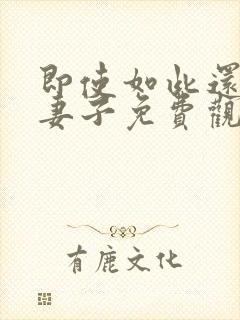 即使如此還
妻子免費觀
有鹿文化